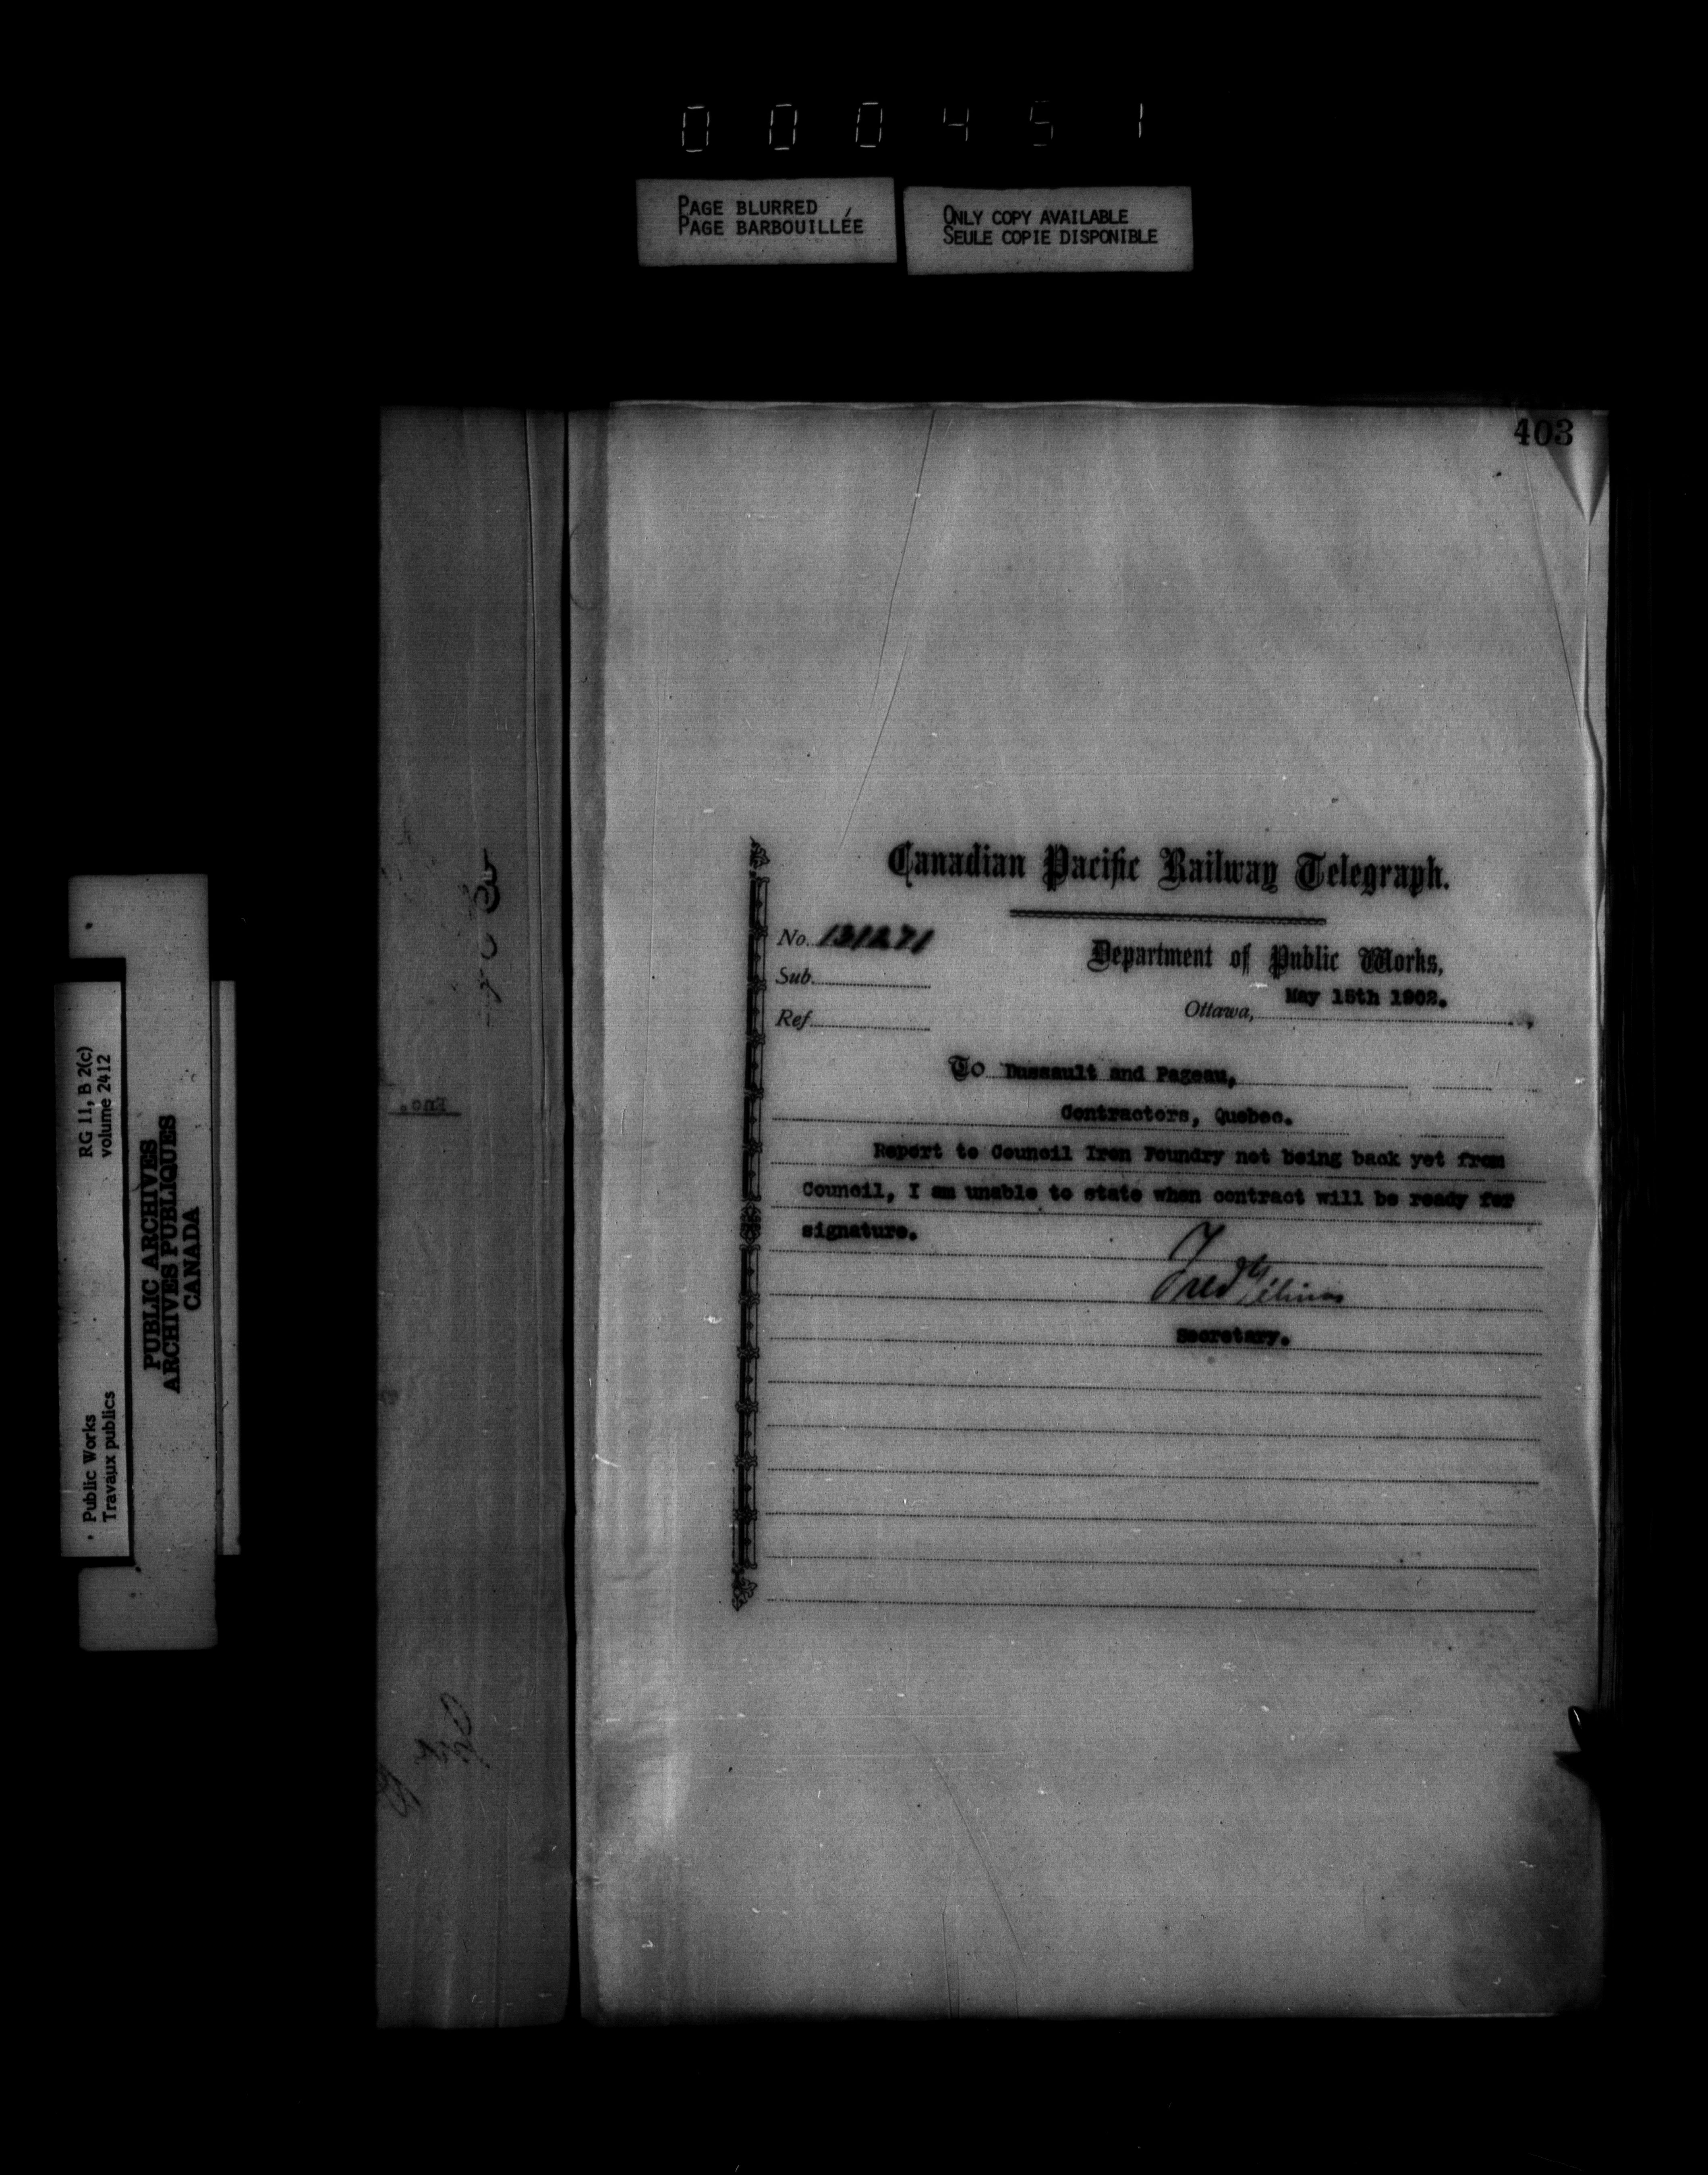 000451
PAGE BLURRED
PAGE BARBOUILLÉE
ONLY COPY AVAILABLE
SEULE COPIE DISPONIBLE
403
Canadian Pacific Railway Telegraph.
No. 131271
Department of Public Works,
Sub.
May 15th 1902.
Ottawa,
Ref.
To Dussault and Pageau,
Contractors, Quebec.
Report to Council Iron Foundry not being back yet from
Council, I am unable to state when contract will be ready for
signature.
Fred Gélinas
Secretary.
Enc.
RG 11, B 2(c)
volume 2412
Public Works
Travaux publics
PUBLIC ARCHIVES
ARCHIVES PUBLIQUES
CANADA